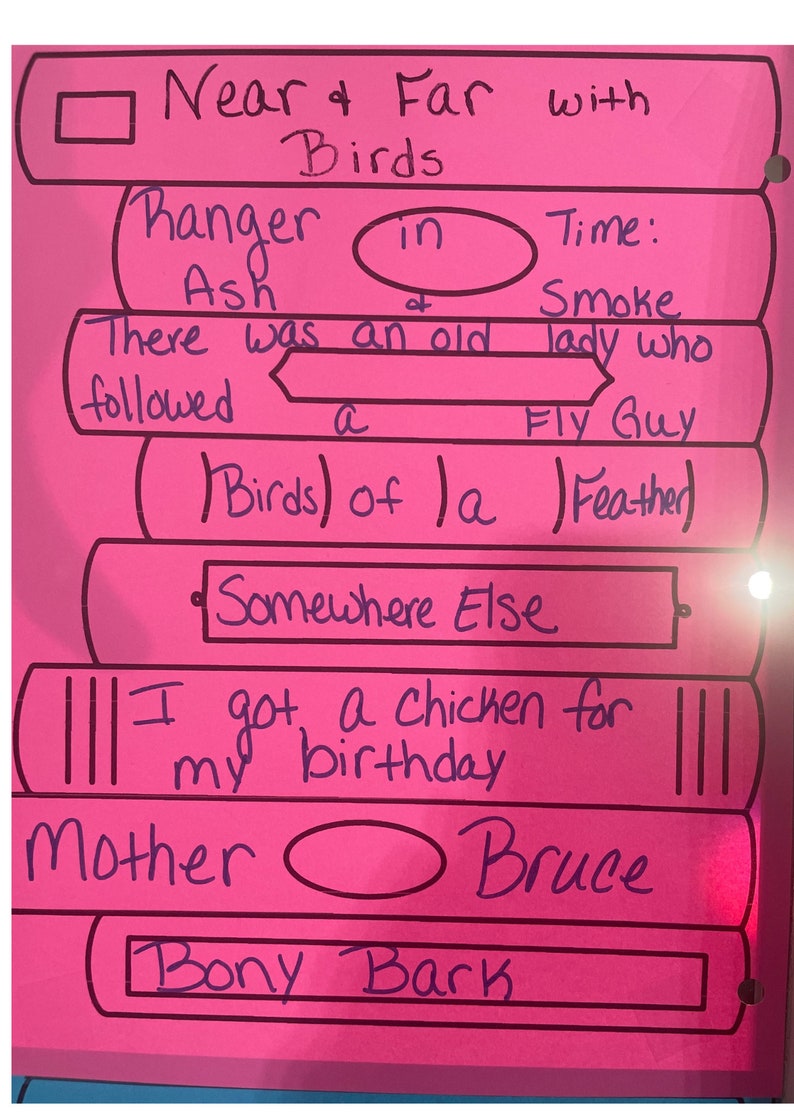 Near & Far with
Birds
Ranger in Time:
Ash & Smoke
There was an old lady who
followed a Fly Guy
Birds of a Feather
Somewhere Else
I got a chicken for
my birthday
Mother Bruce
Bony Bark